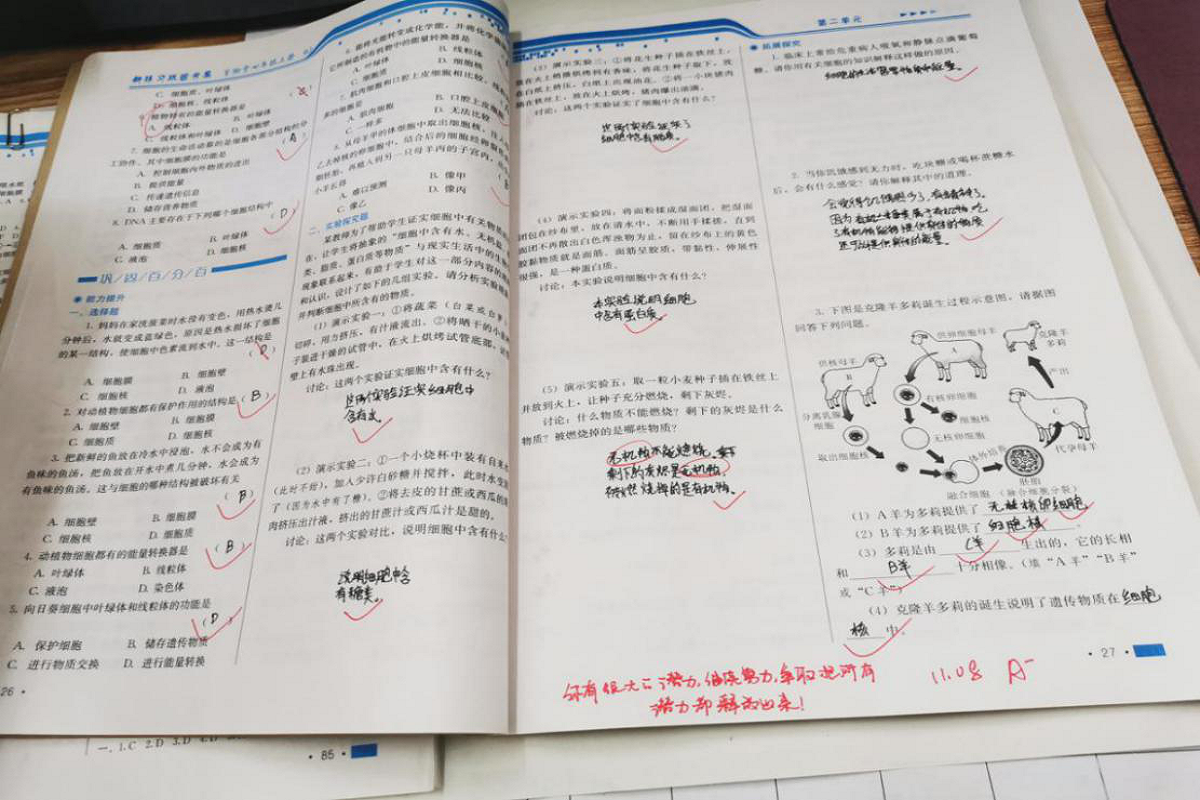 新课习巩固方案
C. 细胞质、叶绿体
D. 细胞核、线粒体
A. 线粒体
B. 叶绿体
C. 线粒体和叶绿体
D. 细胞质
7. 细胞的生命活动靠的是细胞各部分结构的分
工协作。其中细胞膜的功能是
(A)
A. 控制细胞内外物质的进出
B. 提供能量
C. 传递遗传信息
D. 储存营养物质
8. DNA主要存在于下列哪个细胞结构中
(D)
A. 细胞质
B. 叶绿体
C. 液泡
D. 细胞核
巩/固/百/分/百
能力提升
一、选择题
1. 妈妈在家洗菠菜时水没有变色,用热水烫几
分钟后,水就变成蓝绿色,原因是热水损坏了细胞
的某一结构,使细胞中色素流到水中。这一结构是
A. 细胞膜
B. 细胞壁
C. 细胞核
D. 液泡
2. 对动植物细胞都有保护作用的结构是(B)
A. 细胞壁
B. 细胞膜
C. 细胞质
D. 细胞核
3. 把新鲜的鱼放在冷水中浸泡,水不会成为有
鱼味的鱼汤,把鱼放在开水中煮几分钟,水会成为
有鱼味的鱼汤。这与细胞的哪种结构被破坏有关
(B)
A. 细胞壁
B. 细胞膜
C. 细胞核
D. 细胞质
4. 动植物细胞都有的能量转换器是
(B)
A. 叶绿体
B. 线粒体
C. 液泡
D. 染色体
5. 向日葵细胞中叶绿体和线粒体的功能是
(D)
A. 保护细胞
B. 储存遗传物质
C. 进行物质交换
D. 进行能量转换
26
B. 线粒体
C. 细胞质
D. 细胞核
7. 肌肉细胞和口腔上皮细胞相比较,
A. 肌肉细胞
B. 口腔上皮
C. 一样多
D. 无法比较
小羊长得
A. 难以预测
B. 像甲
C. 像乙
D. 像丙
二、实验探究题
某教师为了帮助学生证实细胞中有关物质的
在,让学生将抽象的“细胞中含有水、无机盐、
类、脂质、蛋白质等物质”与现实生活中的生
现象联系起来,有助于学生对这一部分内容的
和认识,设计了如下的几组实验。请分析实验
并判断细胞中所含有的物质。
(1)演示实验一:①将蔬菜(白菜或
切碎,用力挤压,有汁液流出。②将晒干的小
子装进干燥的试管中,在火上烘烤试管底部,
壁上有水珠出现。
讨论:这两个实验证实细胞中含有什么?
这两个实验证实细胞中
含有水
(2)演示实验二:①一个小烧杯中装有自来水
(此时不甜),加入少许白砂糖并搅拌,此时水变
了(因为水中有了糖)。②将去皮的甘蔗或西瓜的
肉挤压出汁液,挤出的甘蔗汁或西瓜汁是甜的。
讨论:这两个实验对比,说明细胞中含有什么
说明细胞中含
有糖类。
第二单元
(3)演示实验三:①将花生种子插在铁丝上,
在火上稍微烘烤到有香味,将花生种子取下,放
在白纸上挤压,白纸上出现油花。②将一小块猪肉
插在铁丝上,放在火上烘烤,猪肉爆出油滴。
讨论:这两个实验证实了细胞中含有什么?
这两个实验证实了
细胞中含有脂质。
(4)演示实验四:将面粉揉成湿面团,把湿面
团包在纱布里,放在清水中,不断用手揉搓,直到
面团不再散出白色浑浊物为止,留在纱布上的黄色
胶黏物质就是面筋。面筋呈胶质,带黏性,伸展性
很强,是一种蛋白质。
讨论:本实验说明细胞中含有什么?
本实验说明细胞
中含有蛋白质。
(5)演示实验五:取一粒小麦种子插在铁丝上
并放到火上,让种子充分燃烧,剩下灰烬。
讨论:什么物质不能燃烧?剩下的灰烬是什么
物质?被燃烧掉的是哪些物质?
无机物不能燃烧。
剩下的灰烬是无机物。
被燃烧掉的是有机物。
拓展探究
1. 临床上常给危重病人吸氧和静脉点滴葡萄
糖。请你用有关细胞的知识解释这样做的原因。
2. 当你饥饿感到无力时,吃块糖或喝杯蔗糖水
后,会有什么感觉?请你解释其中的道理。
3. 下图是克隆羊多莉诞生过程示意图,请据图
回答下列问题。
供核母羊
B
供卵细胞母羊
A
克隆羊
多莉
产出
分离乳腺
细胞
有核卵细胞
细胞核
C
无核卵细胞
代孕母羊
取出细胞核
体外培养
胚胎
融合细胞
(融合细胞分裂)
(1)A羊为多莉提供了 无核卵细胞
(2)B羊为多莉提供了 细胞核 。
(3)多莉是由 C羊 生出的,它的长相
和 B羊 十分相像。(填“A羊”“B羊”
或“C羊”)
(4)克隆羊多莉的诞生说明了遗传物质在 细胞
核 中。
27
你有很大的潜力,继续努力,争取把所有
潜力都释放出来!
11.08 A-
一、1.C 2.D 3.D
85